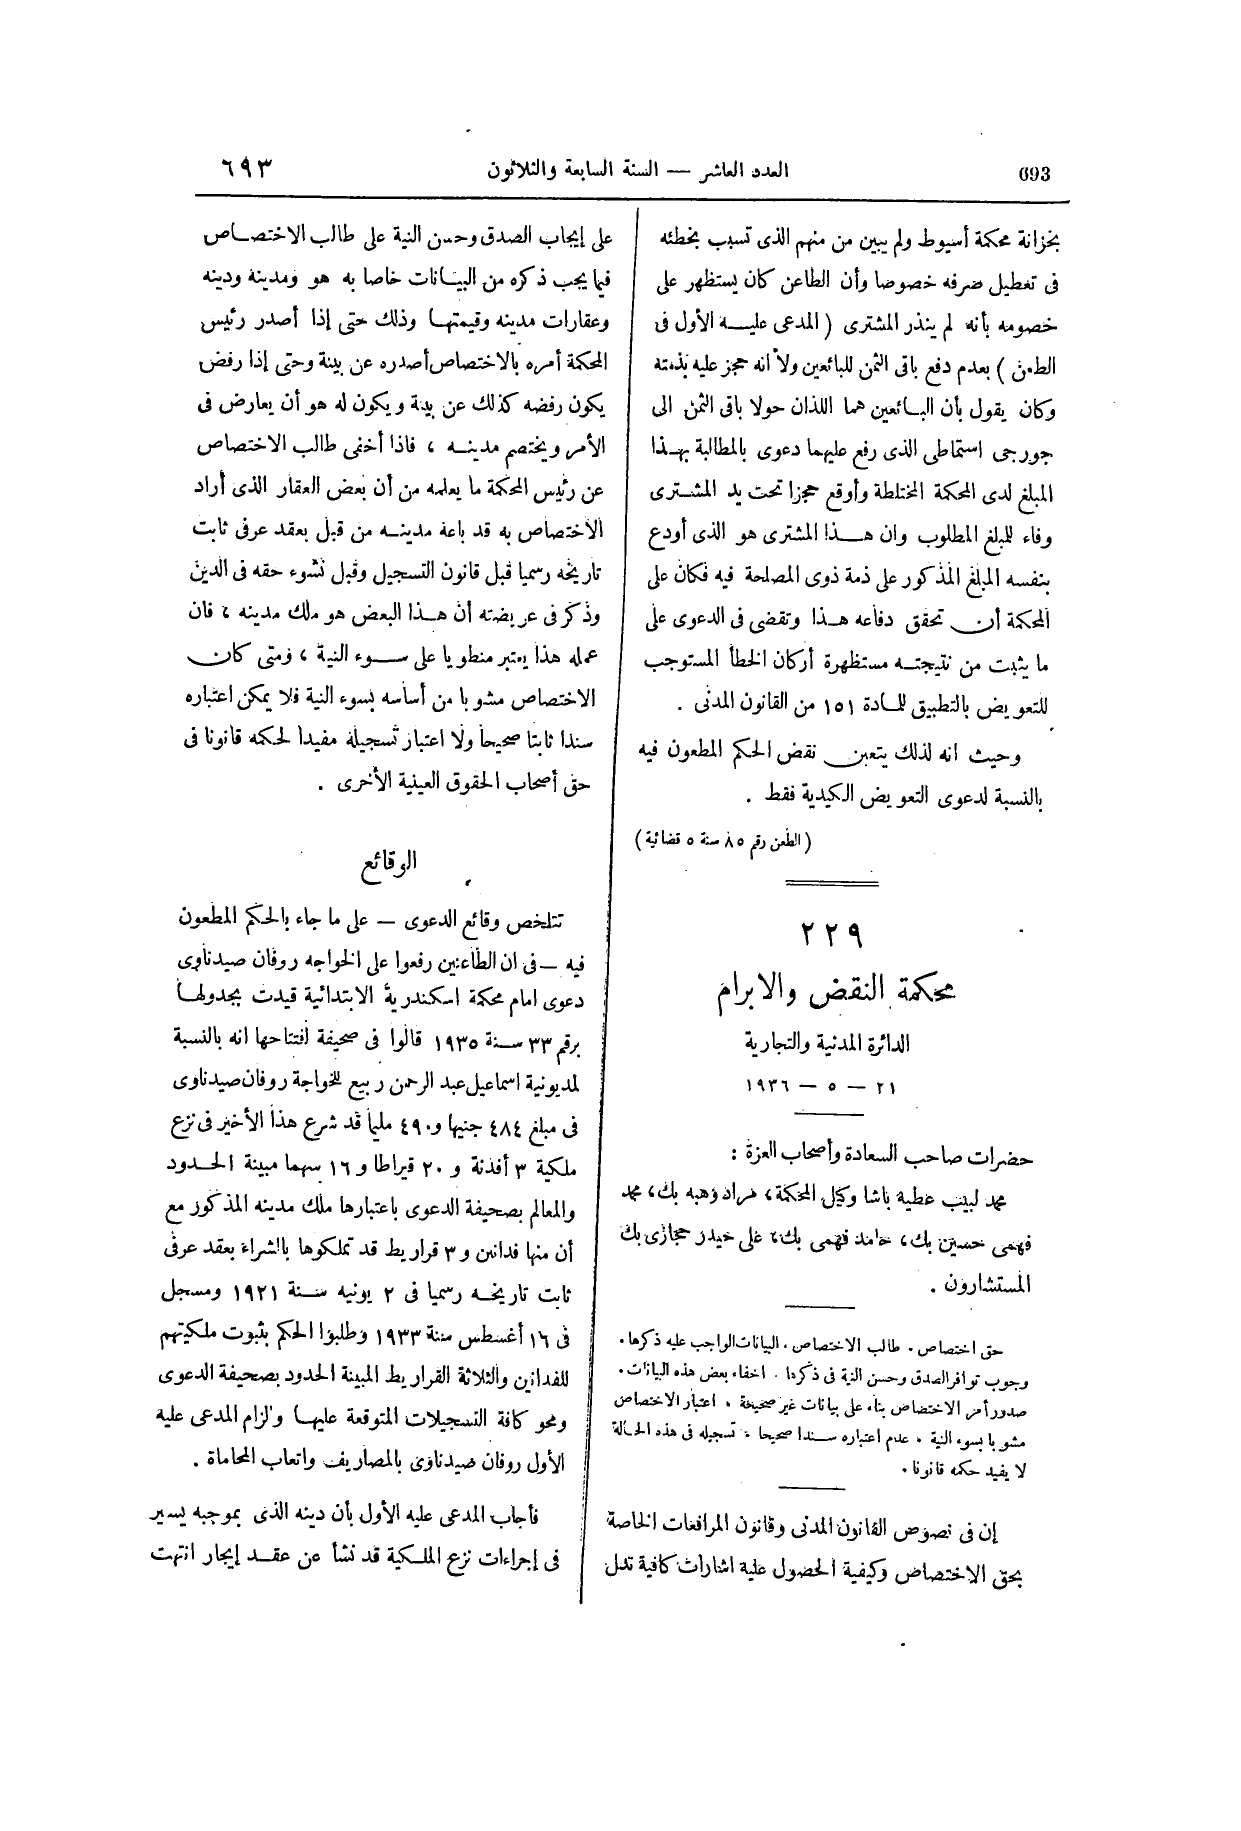 693
العدد العاشر — السنة السابعة والثلاثون
٦٩٣
بخزانة محكمة أسيوط ولم يبين من منهم الذى تسبب بخطئه
فى تعطيل صرفه خصوصا وأن الطاعن كان يستظهر على
خصومه بأنه لم ينذر المشترى ( المدعى عليه الأول فى
الطعن ) بعدم دفع باقى الثمن للبائعين ولا أنه حجز عليه بذمته
وكان يقول بأن البائعين هما اللذان حولا باقى الثمن الى
جورجى استماطى الذى رفع عليهما دعوى بالمطالبة بهذا
المبلغ لدى المحكمة المختلطة وأوقع حجزا تحت يد المشترى
وفاء للمبلغ المطلوب وان هذا المشترى هو الذى أودع
بنفسه المبلغ المذكور على ذمة ذوى المصلحة فيه فكان على
المحكمة أن تحقق دفاعه هذا وتقضى فى الدعوى على
ما يثبت من نتيجته مستظهرة أركان الخطأ المستوجب
للتعويض بالتطبيق للمادة ١٥١ من القانون المدنى .
وحيث انه لذلك يتعين نقض الحكم المطعون فيه
بالنسبة لدعوى التعويض الكيدية فقط .
( الطعن رقم ٨٥ سنة ٥ قضائية )
٢٢٩
محكمة النقض والابرام
الدائرة المدنية والتجارية
٢١ — ٥ — ١٩٣٦
حضرات صاحب السعادة وأصحاب العزة :
محمد لبيب عطية باشا وكيل المحكمة، مراد وهبه بك، محمد
فهمى حسين بك، حامد فهمى بك، على حيدر حجازى بك
المستشارون .
حق اختصاص . طالب الاختصاص . البيانات الواجب عليه ذكرها .
وجوب توافر الصدق وحسن النية فى ذكرها . اخفاء بعض هذه البيانات .
صدور أمر الاختصاص بناء على بيانات غير صحيحة . اعتبار الاختصاص
مشوبا بسوء النية . عدم اعتباره سندا صحيحا . تسجيله فى هذه الحالة
لا يفيد حكمه قانونا .
إن فى نصوص القانون المدنى وقانون المرافعات الخاصة
بحق الاختصاص وكيفية الحصول عليه اشارات كافية تدل
على إيجاب الصدق وحسن النية على طالب الاختصاص
فيما يجب ذكره من البيانات خاصا به هو ومدينه ودينه
وعقارات مدينه وقيمتها وذلك حتى إذا أصدر رئيس
المحكمة أمره بالاختصاص أصدره عن بينة وحتى إذا رفض
يكون رفضه كذلك عن بينة ويكون له هو أن يعارض فى
الأمر ويختصم مدينه ، فاذا أخفى طالب الاختصاص
عن رئيس المحكمة ما يعلمه من أن بعض العقار الذى أراد
الاختصاص به قد باعه مدينه من قبل بعقد عرفى ثابت
تاريخه رسميا قبل قانون التسجيل وقبل نشوء حقه فى الدين
وذكر فى عريضته أن هذا البعض هو ملك مدينه ، فان
عمله هذا يعتبر منطويا على سوء النية ، ومتى كان
الاختصاص مشوبا من أساسه بسوء النية فلا يمكن اعتباره
سندا ثابتا صحيحا ولا اعتبار تسجيله مفيدا لحكمه قانونا فى
حق أصحاب الحقوق العينية الأخرى .
الوقائع
تتلخص وقائع الدعوى — على ما جاء بالحكم المطعون
فيه — فى ان الطاعنين رفعوا على الخواجه روفان صيدناوى
دعوى امام محكمة اسكندرية الابتدائية قيدت بجدولها
برقم ٣٣ سنة ١٩٣٥ قالوا فى صحيفة افتتاحها انه بالنسبة
لمديونية اسماعيل عبد الرحمن ربيع للخواجة روفان صيدناوى
فى مبلغ ٤٨٤ جنيها و ٤٩٠ مليما قد شرع هذا الأخير فى نزع
ملكية ٣ أفدنة و ٢٠ قيراطا و ١٦ سهما مبينة الحدود
والمعالم بصحيفة الدعوى باعتبارها ملك مدينه المذكور مع
أن منها فدانين و ٣ قراريط قد تملكوها بالشراء بعقد عرفى
ثابت تاريخه رسميا فى ٢ يونيه سنة ١٩٢١ ومسجل
فى ١٦ أغسطس سنة ١٩٣٣ وطلبوا الحكم بثبوت ملكيتهم
للفدانين والثلاثة القراريط المبينة الحدود بصحيفة الدعوى
ومحو كافة التسجيلات المتوقعة عليها والزام المدعى عليه
الأول روفان صيدناوى بالمصاريف واتعاب المحاماة .
فأجاب المدعى عليه الأول بأن دينه الذى بموجبه يسير
فى إجراءات نزع الملكية قد نشأ عن عقد إيجار انتهت